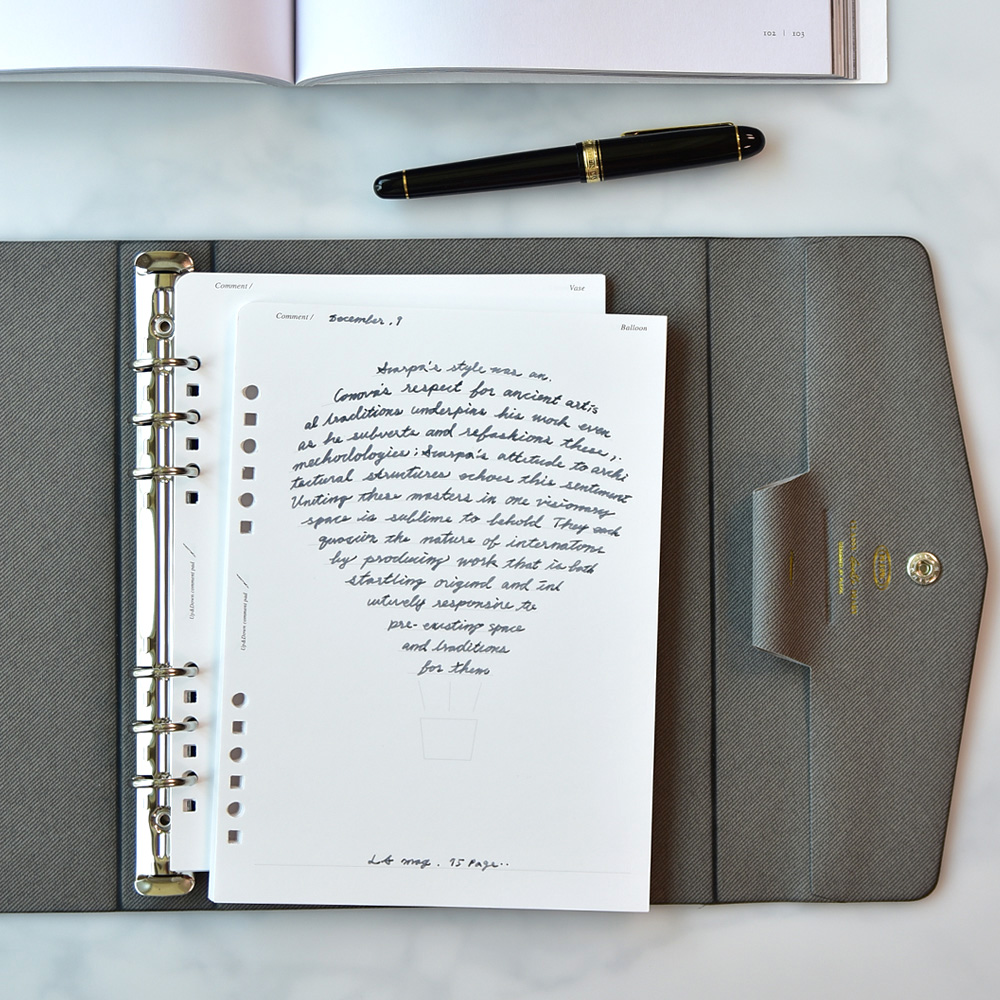 102 | 103
Comment /
Vase
Comment / December, 9
Balloon
Scarpa's style was an.
Conova's respect for ancient artis
al traditions underpins his work even
as he subverts and refashions these,.
mechodologies; Scarpa's attitude to archi
tectural structures echoes this sentiment
Uniting these masters in one visionary
space is sublime to behold They each
the nature of internatons
by producing work that is both
startling original and int
responsire to
pre-existing space
and traditions
for thems
Up&Down comment pad
Up&Down comment pad
mag. 75 Page..